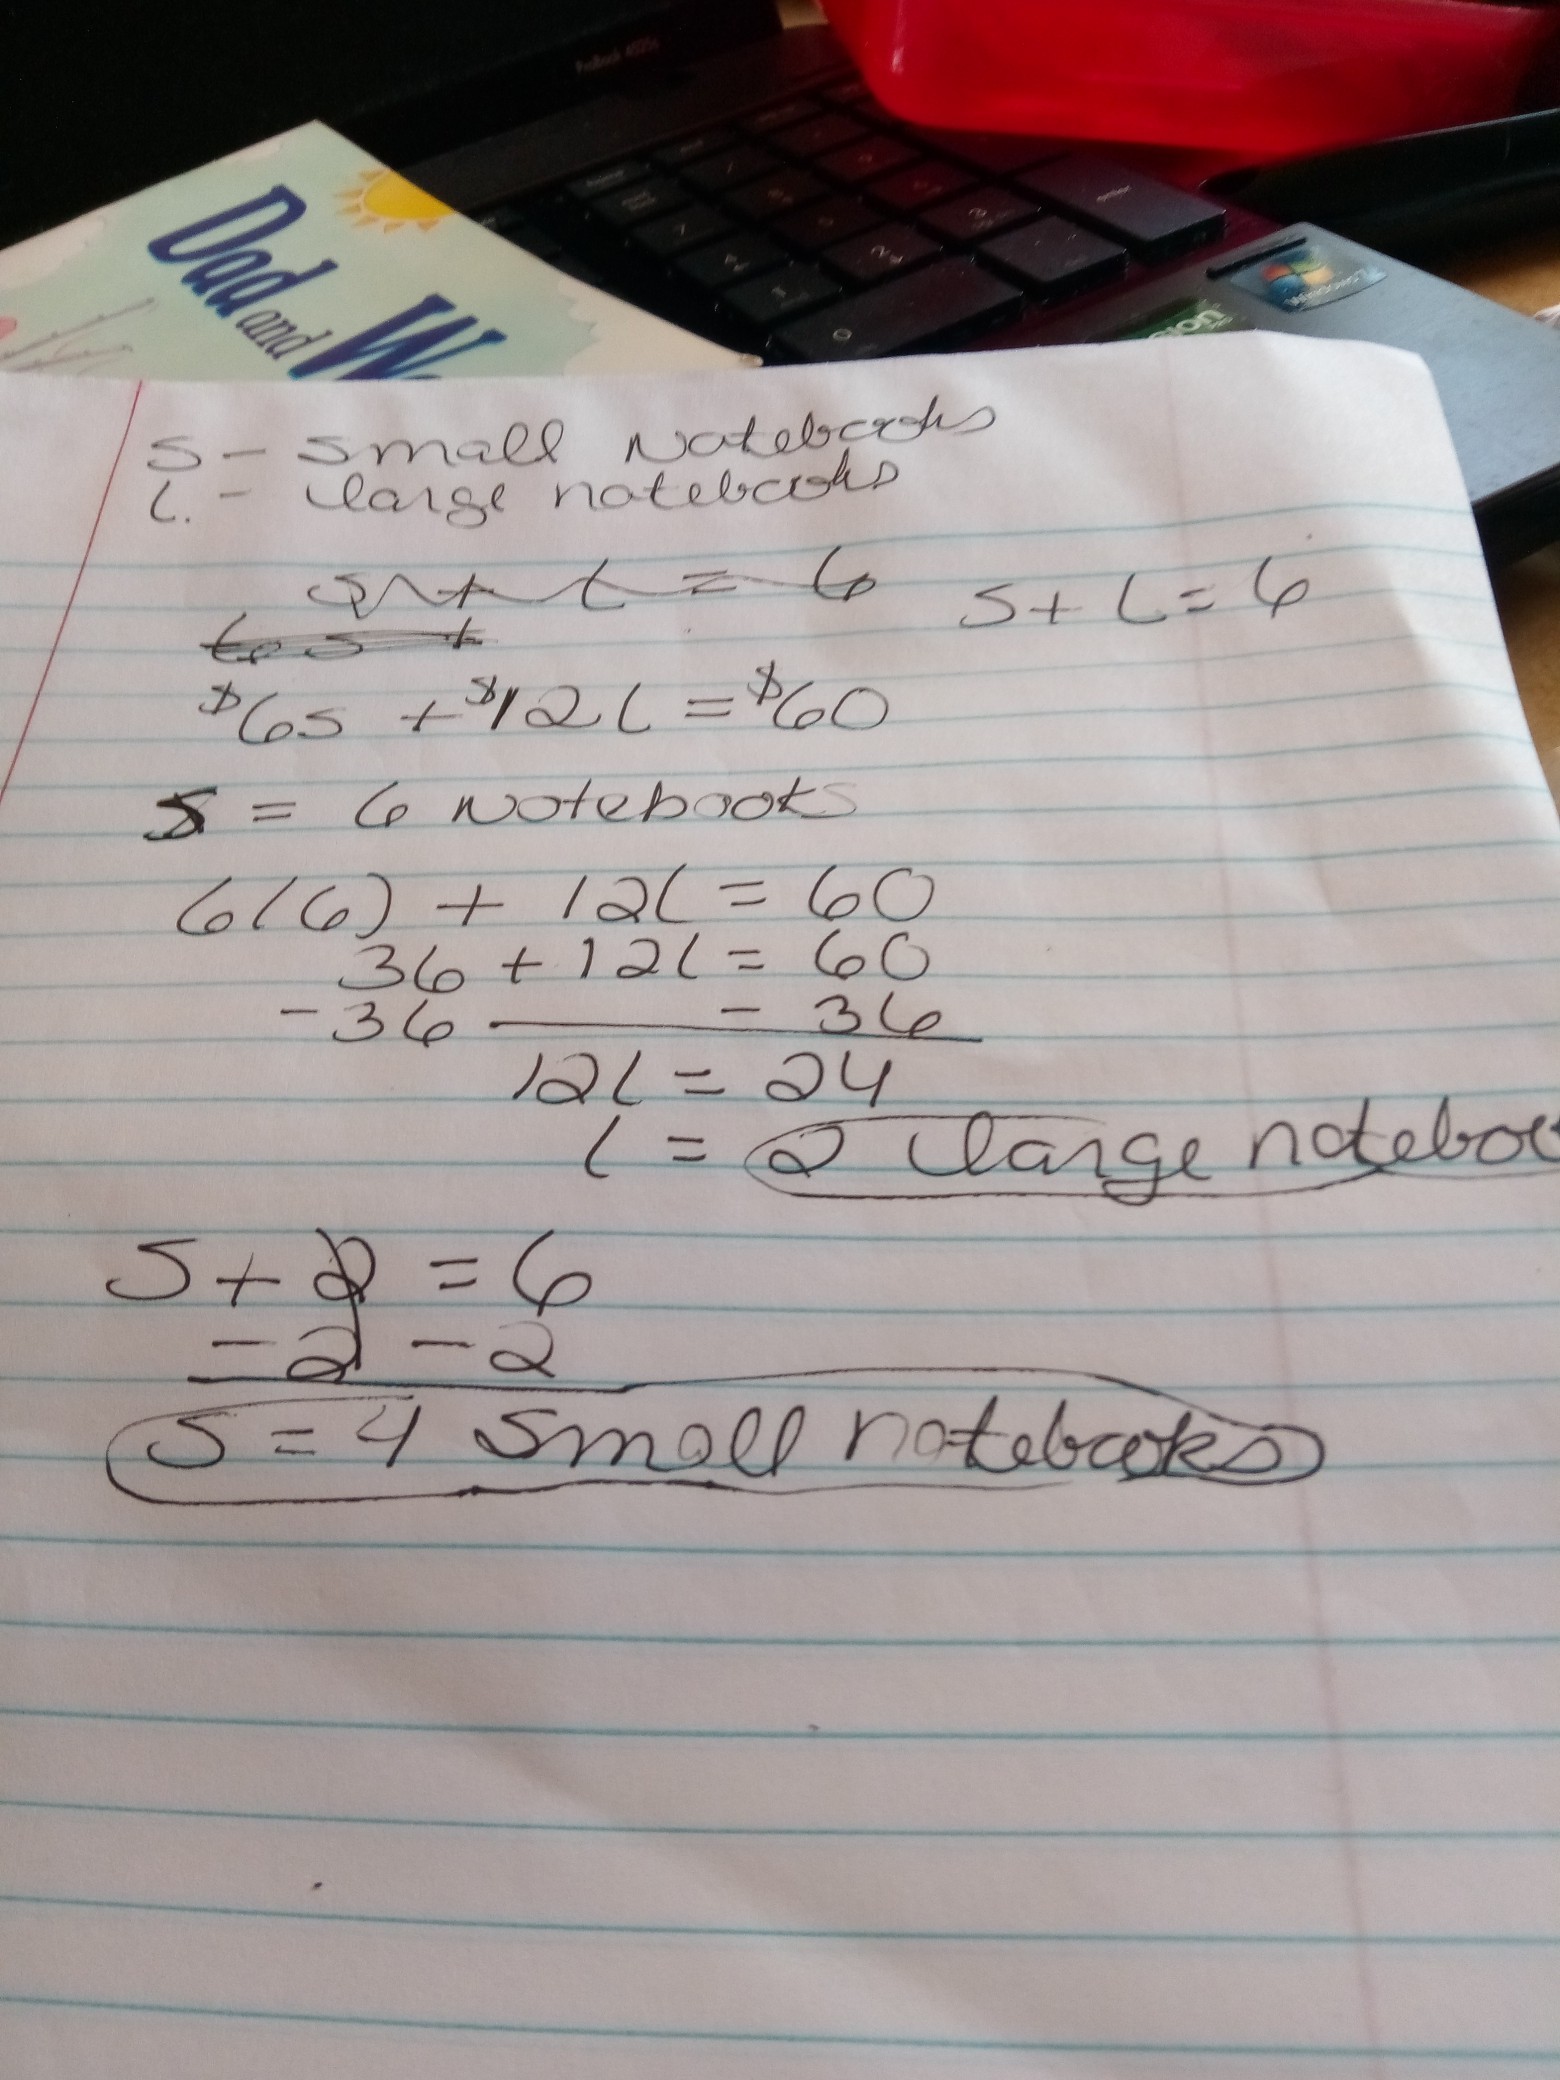 ProBook 4525s
enter
Windows 7
Dad and
s - small Notebooks
L. - large notebooks
s + L = 6
s + L = 6
6s +
$6s + $12L = $60
s = 6 Notebooks
6(6) + 12L = 60
36 + 12L = 60
-36 - 36
12L = 24
L = 2 large noteboo
S + 2 = 6
- 2 - 2
S = 4 small notebooks